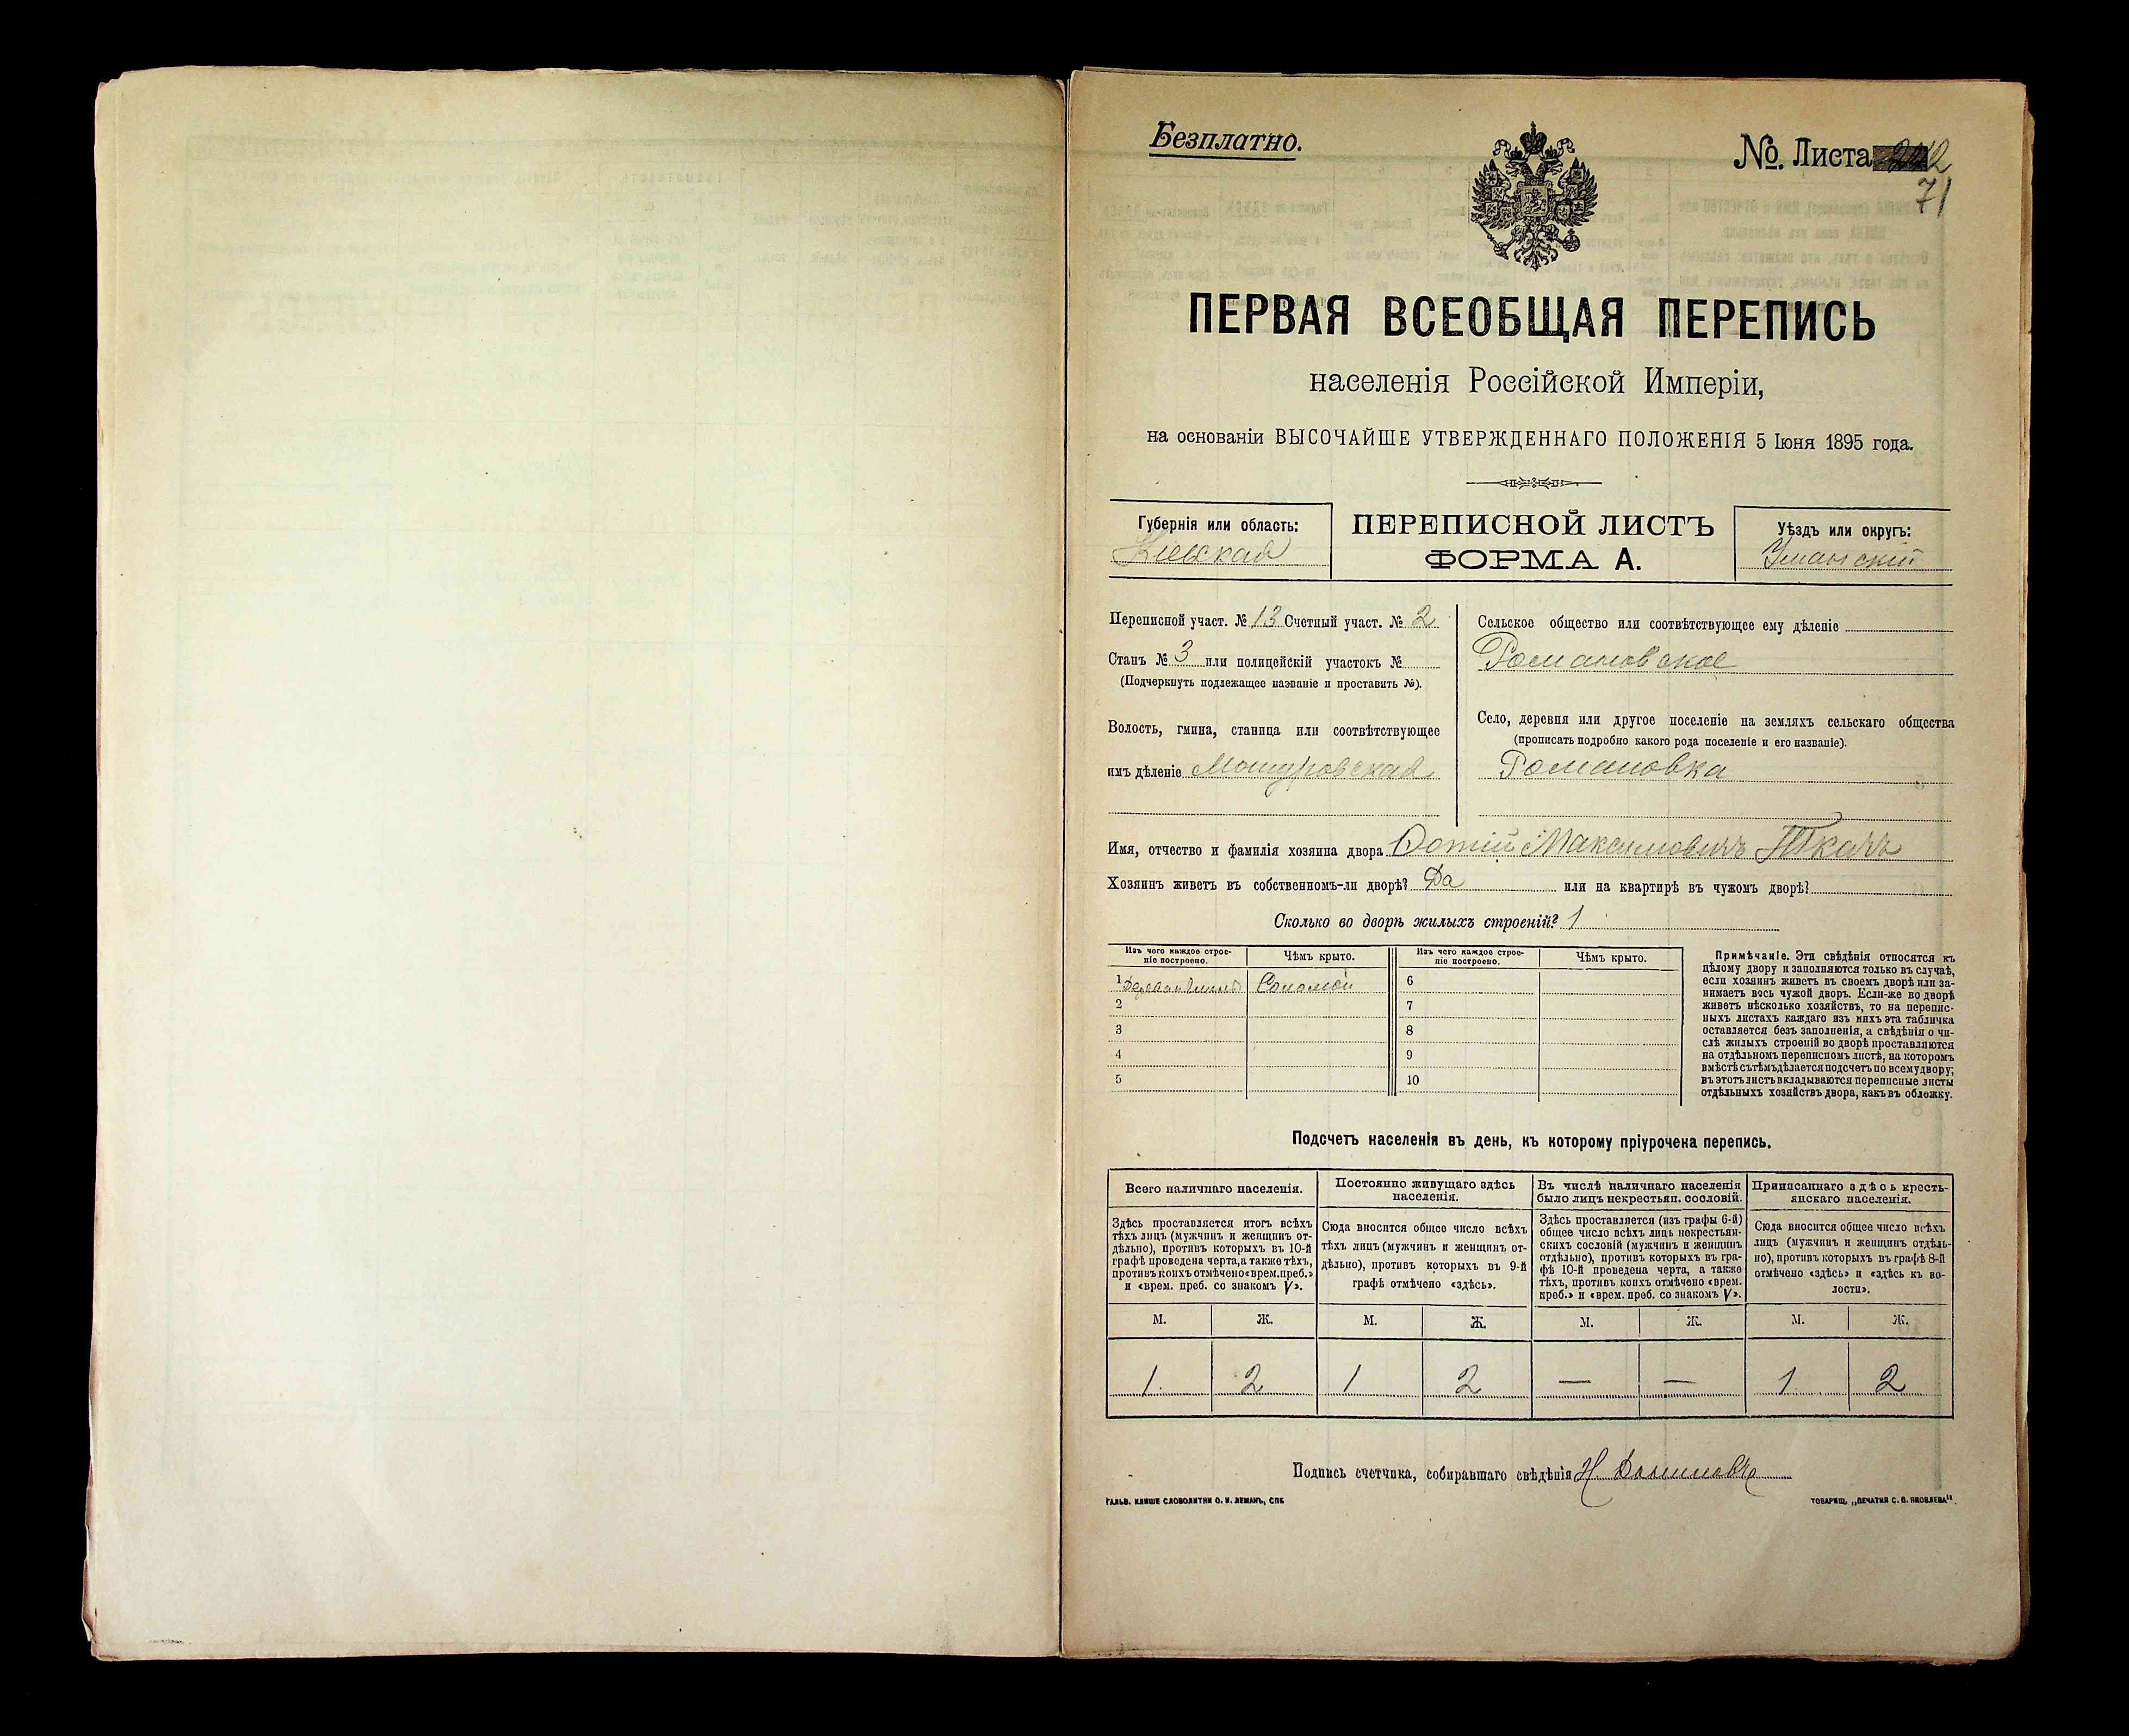 Безплатно.
No. Листа
71
ПЕРВАЯ ВСЕОБЩАЯ ПЕРЕПИСЬ
населенія Россійской Имперіи,
на основаніи ВЫСОЧАЙШЕ УТВЕРЖДЕННАГО ПОЛОЖЕНІЯ 5 Іюня 1895 года.
Губернія или область:
Кіевская
ПЕРЕПИСНОЙ ЛИСТЪ
ФОРМА А.
Уѣздъ или округъ:
Уманскій
Переписной участ. № 13 Счетный участ. № 2
Станъ № 3 или полицейскій участокъ №
(Подчеркнуть подлежащее названіе и проставить №).
Волость, гмина, станица или соотвѣтствующее
имъ дѣленіе Машуровская
Сельское общество или соотвѣтствующее ему дѣленіе
Романовское
Село, деревня или другое поселеніе на земляхъ сельскаго общества
(прописать подробно какого рода поселеніе и его названіе).
Романовка
Имя, отчество и фамилія хозяина двора Фотій Максимовичъ Ткачъ
Хозяинъ живетъ въ собственномъ-ли дворѣ? Да или на квартирѣ въ чужомъ дворѣ?
Сколько во дворѣ жилыхъ строеній? 1
Изъ чего каждое строе-
ніе построено.
Чѣмъ крыто.
1
Соломой
2
3
4
5
Изъ чего каждое строе-
ніе построено.
Чѣмъ крыто.
6
7
8
9
10
Примѣчаніе. Эти свѣдѣнія относятся къ
цѣлому двору и заполняются только въ случаѣ,
если хозяинъ живетъ въ своемъ дворѣ или за-
нимаетъ весь чужой дворъ. Если-же во дворѣ
живетъ нѣсколько хозяйствъ, то на перепис-
ныхъ листахъ каждаго изъ нихъ эта табличка
оставляется безъ заполненія, а свѣдѣнія о чи-
слѣ жилыхъ строеній во дворѣ проставляются
на отдѣльномъ переписномъ листѣ, на которомъ
вмѣстѣ съ тѣмъ дѣлается подсчетъ по всему двору;
въ этотъ листъ вкладываются переписные листы
отдѣльныхъ хозяйствъ двора, какъ въ обложку.
Подсчетъ населенія въ день, къ которому пріурочена перепись.
Всего наличнаго населенія.
Здѣсь проставляется итогъ всѣхъ
тѣхъ лицъ (мужчинъ и женщинъ от-
дѣльно), противъ которыхъ въ 10-й
графѣ проведена черта, а также тѣхъ,
противъ коихъ отмѣчено «врем. преб.»
и «врем. преб. со знакомъ V».
Постоянно живущаго здѣсь
населенія.
Сюда вносится общее число всѣхъ
тѣхъ лицъ (мужчинъ и женщинъ от-
дѣльно), противъ которыхъ въ 9-й
графѣ отмѣчено «здѣсь».
Въ числѣ наличнаго населенія
было лицъ некрестьян. сословій.
Здѣсь проставляется (изъ графы 6-й)
общее число всѣхъ лицъ некрестьян-
скихъ сословій (мужчинъ и женщинъ
отдѣльно), противъ которыхъ въ гра-
фѣ 10-й проведена черта, а также
тѣхъ, противъ коихъ отмѣчено «врем.
преб.» и «врем. преб. со знакомъ V».
Приписаннаго здѣсь кресть-
янскаго населенія.
Сюда вносится общее число всѣхъ
лицъ (мужчинъ и женщинъ отдѣль-
но), противъ которыхъ въ графѣ 8-й
отмѣчено «здѣсь» и «здѣсь къ во-
лости».
М. Ж. М. Ж. М. Ж. М. Ж.
1 2 1 2 — — 1 2
Подпись счетчика, собиравшаго свѣдѣнія Н.
ГАЛЬВ. КЛИШЕ СЛОВОЛИТНИ О. И. ЛЕМАНЪ, СПБ
ТОВАРИЩ. „ПЕЧАТНЯ С. П. ЯКОВЛЕВА“.